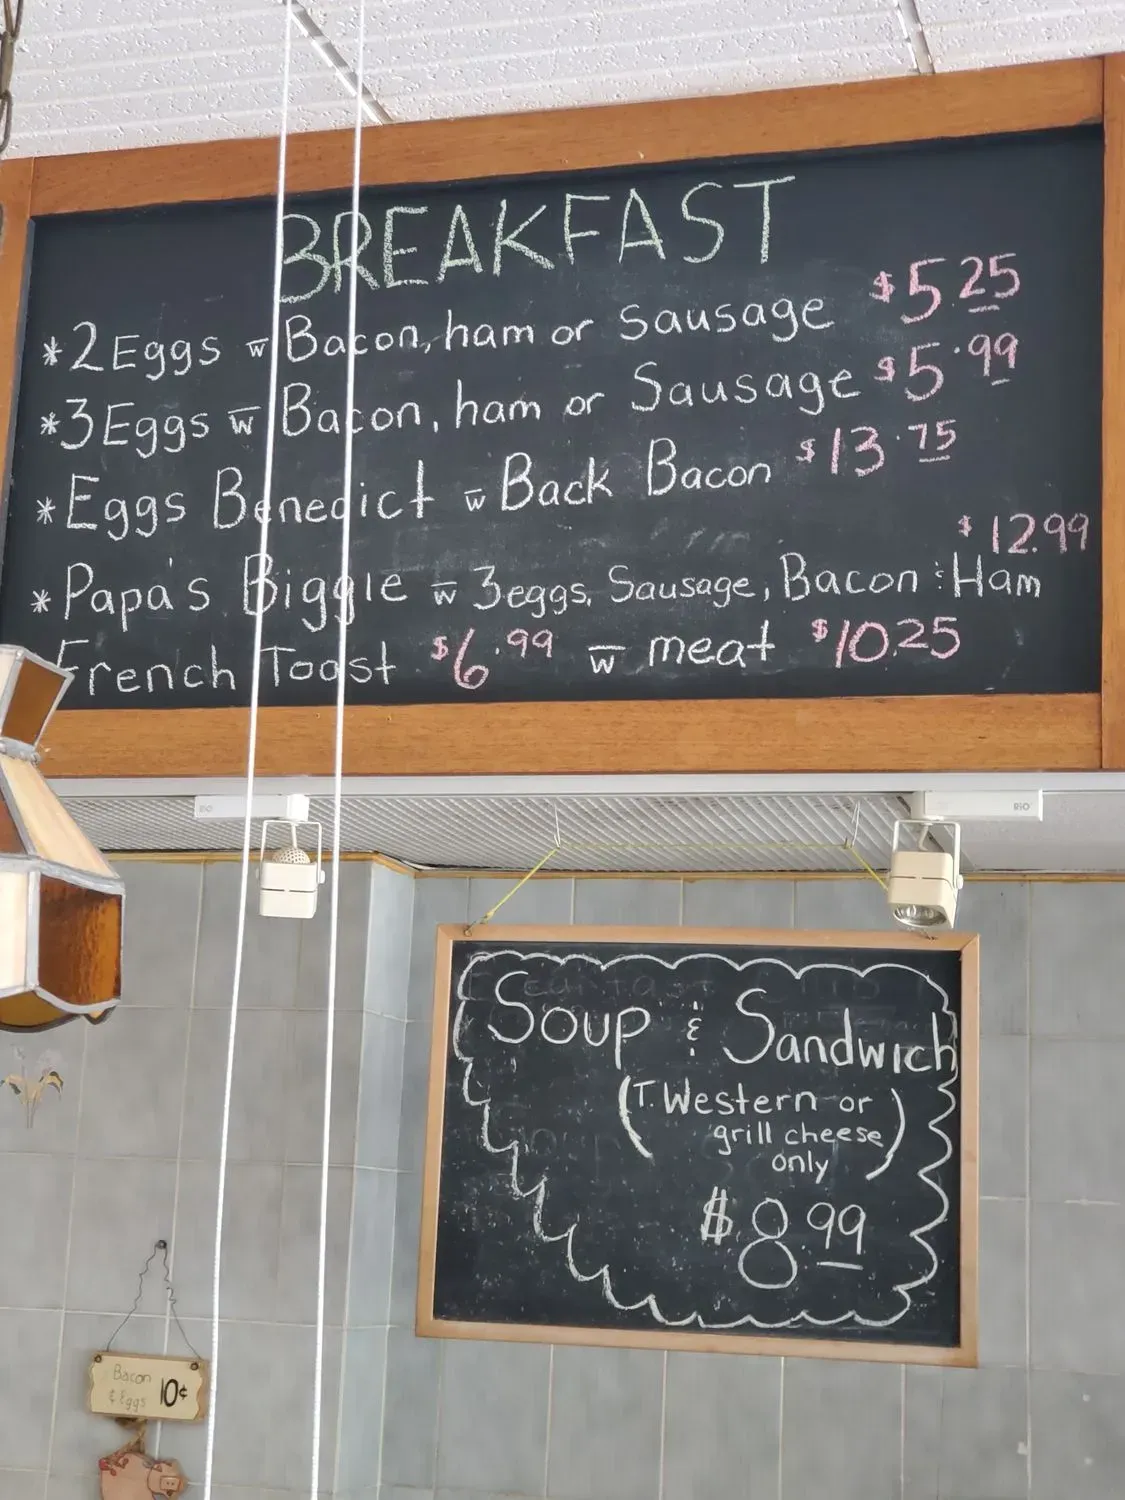 BREAKFAST
*2 Eggs w̅ Bacon, ham or Sausage $5.25
*3 Eggs w̅ Bacon, ham or Sausage $5.99
*Eggs Benedict w̅ Back Bacon $13.75
$12.99
*Papa's Biggie w̅ 3 eggs, Sausage, Bacon & Ham
French Toast $6.99 w̅ meat $10.25
RiO
RiO
Soup & Sandwich
(T. Western or
grill cheese)
only
$8.99
Bacon
& Eggs 10¢